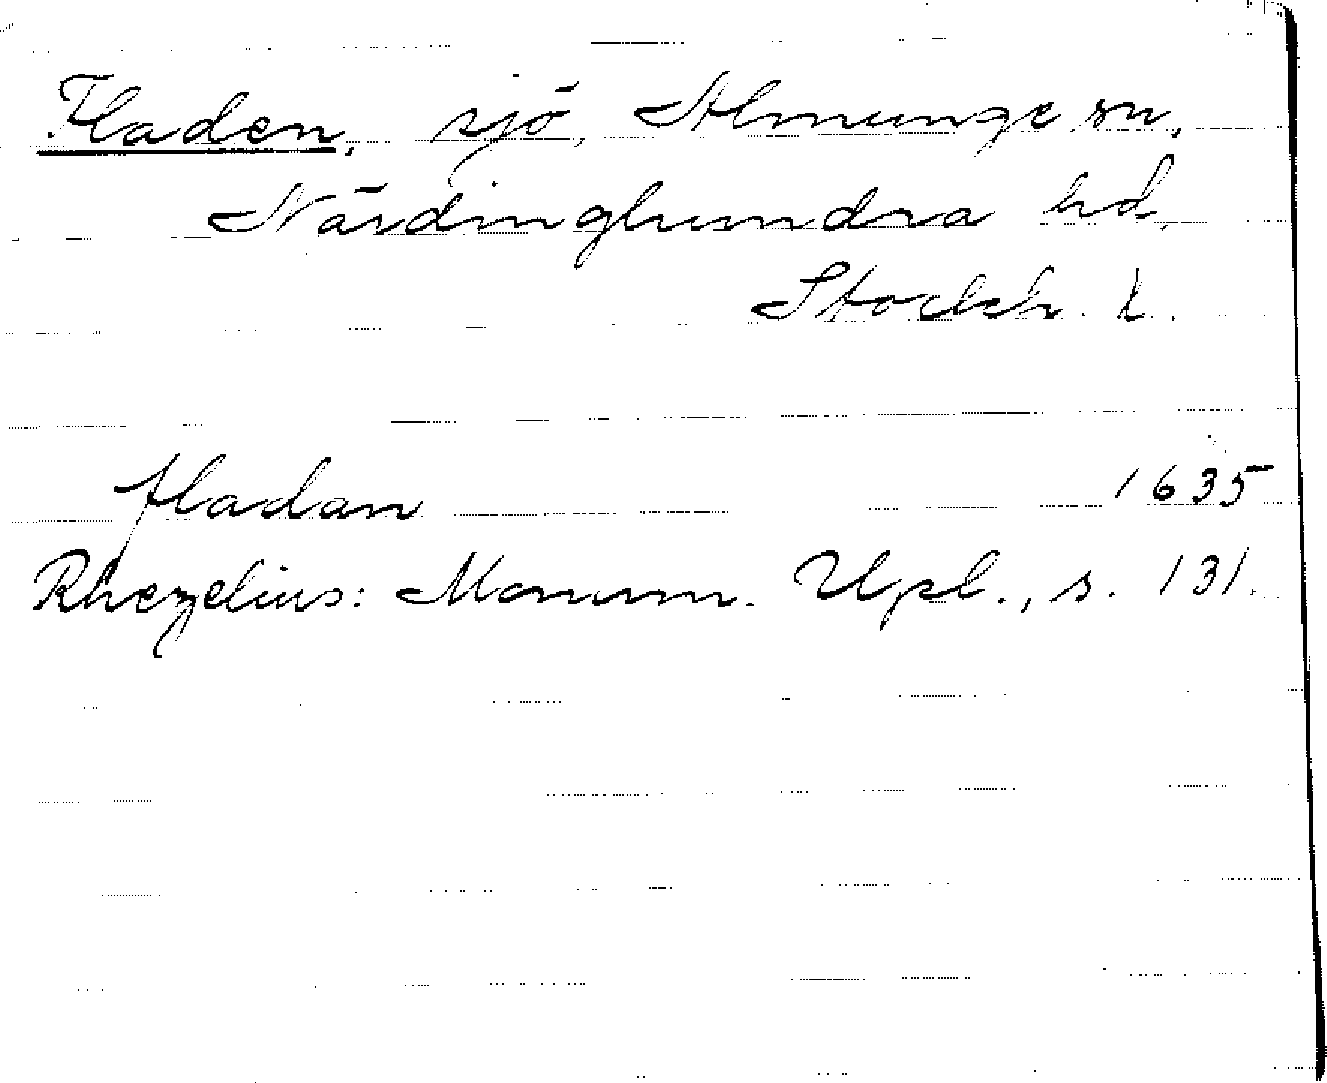 Fladen, sjö, Almunge sn,
Närdinghundra hd,
Stockh. l.
fladan 1635
Rhezelius: Monum. Upl., s. 131.